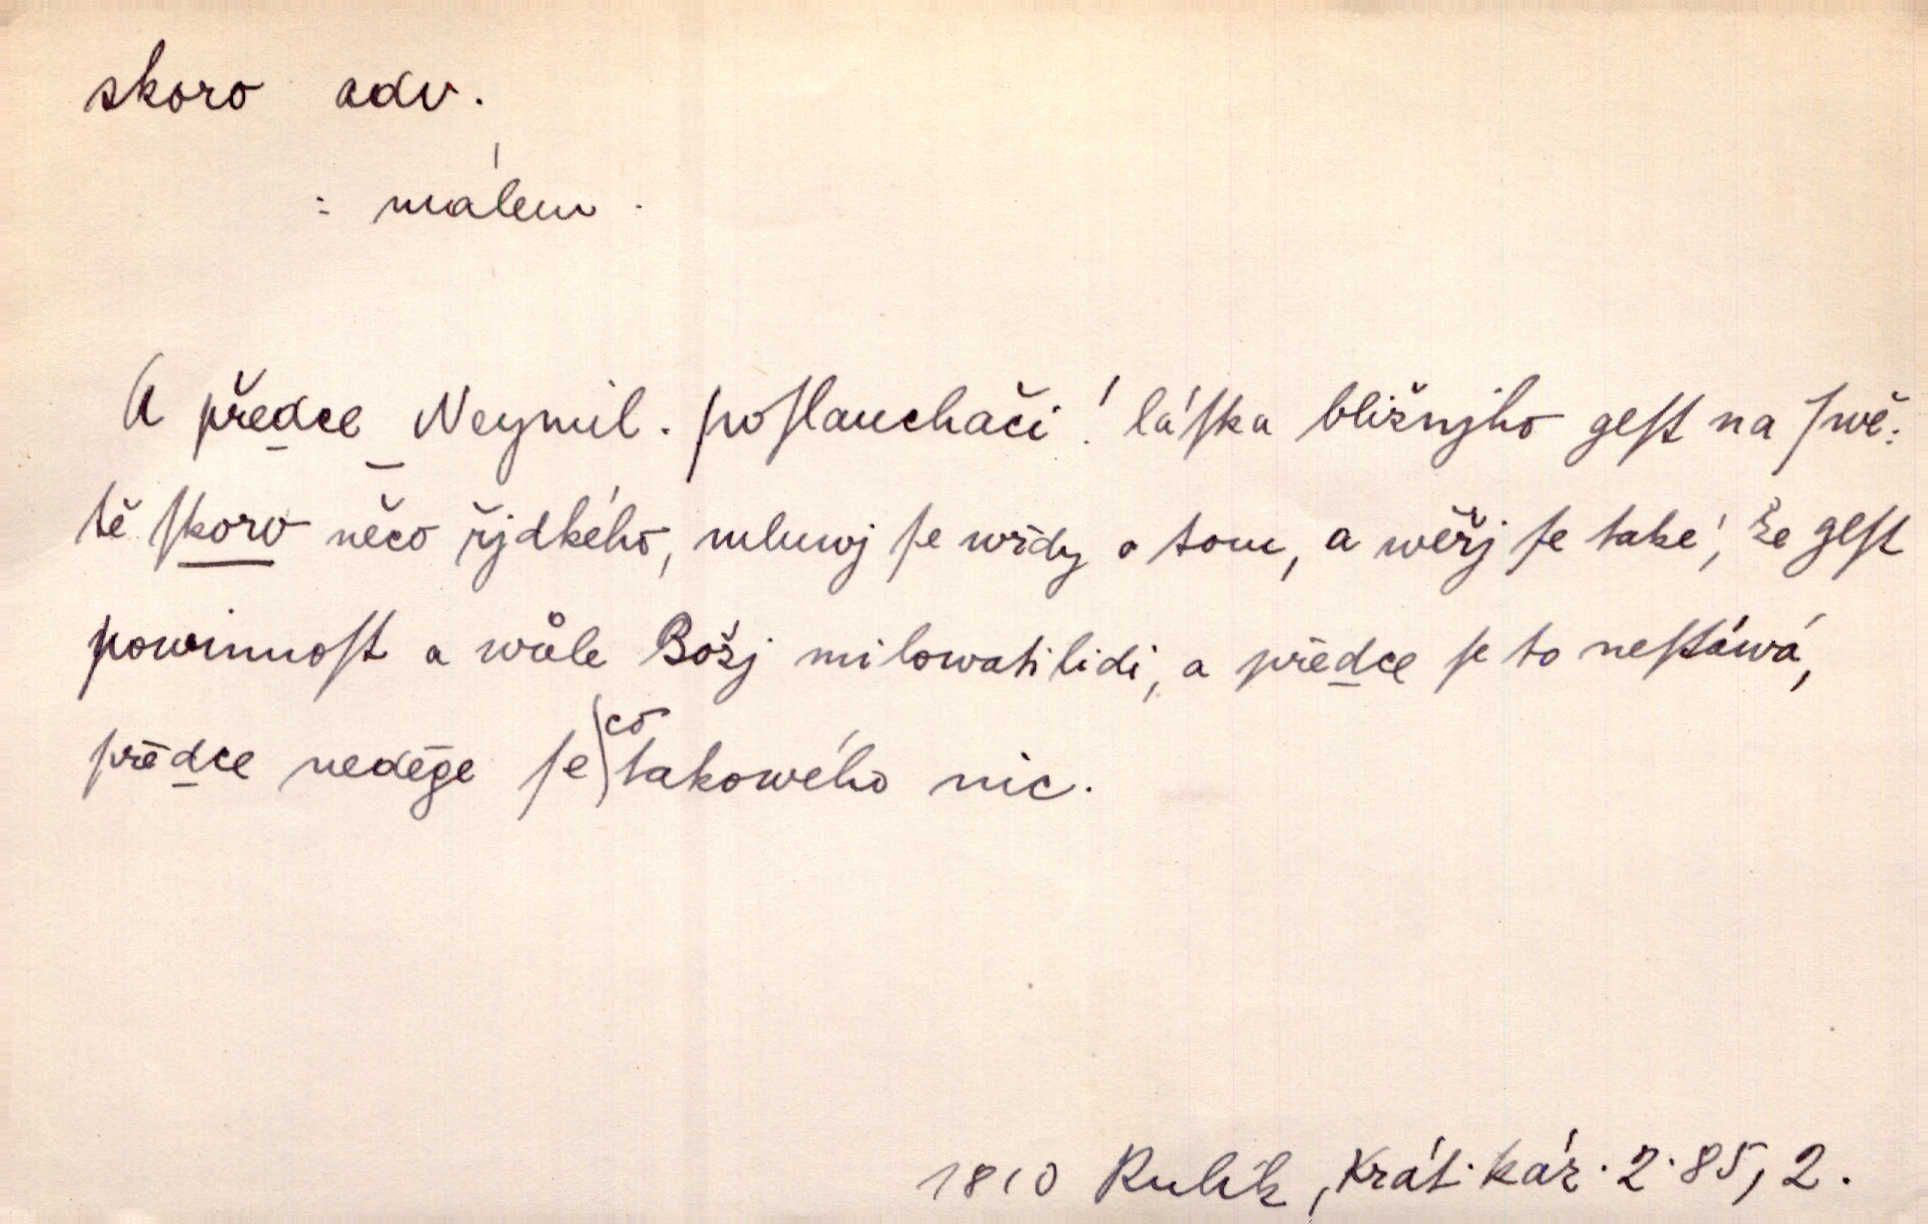 skoro adv.
: málem.
A předce Neymil. poſlauchači! láſka bližnjho geſt na ſwě:
tě ſkoro něco řjdkého, mluwj ſe wždy o tom, a wěřj ſe také, že geſt
powinnoſt a wůle Božj milowati lidi, a předce ſe to neſtáwá,
předce neděge ſe co takowého nic.
1810 Rulík, Krát. káz. 2. 85, 2.